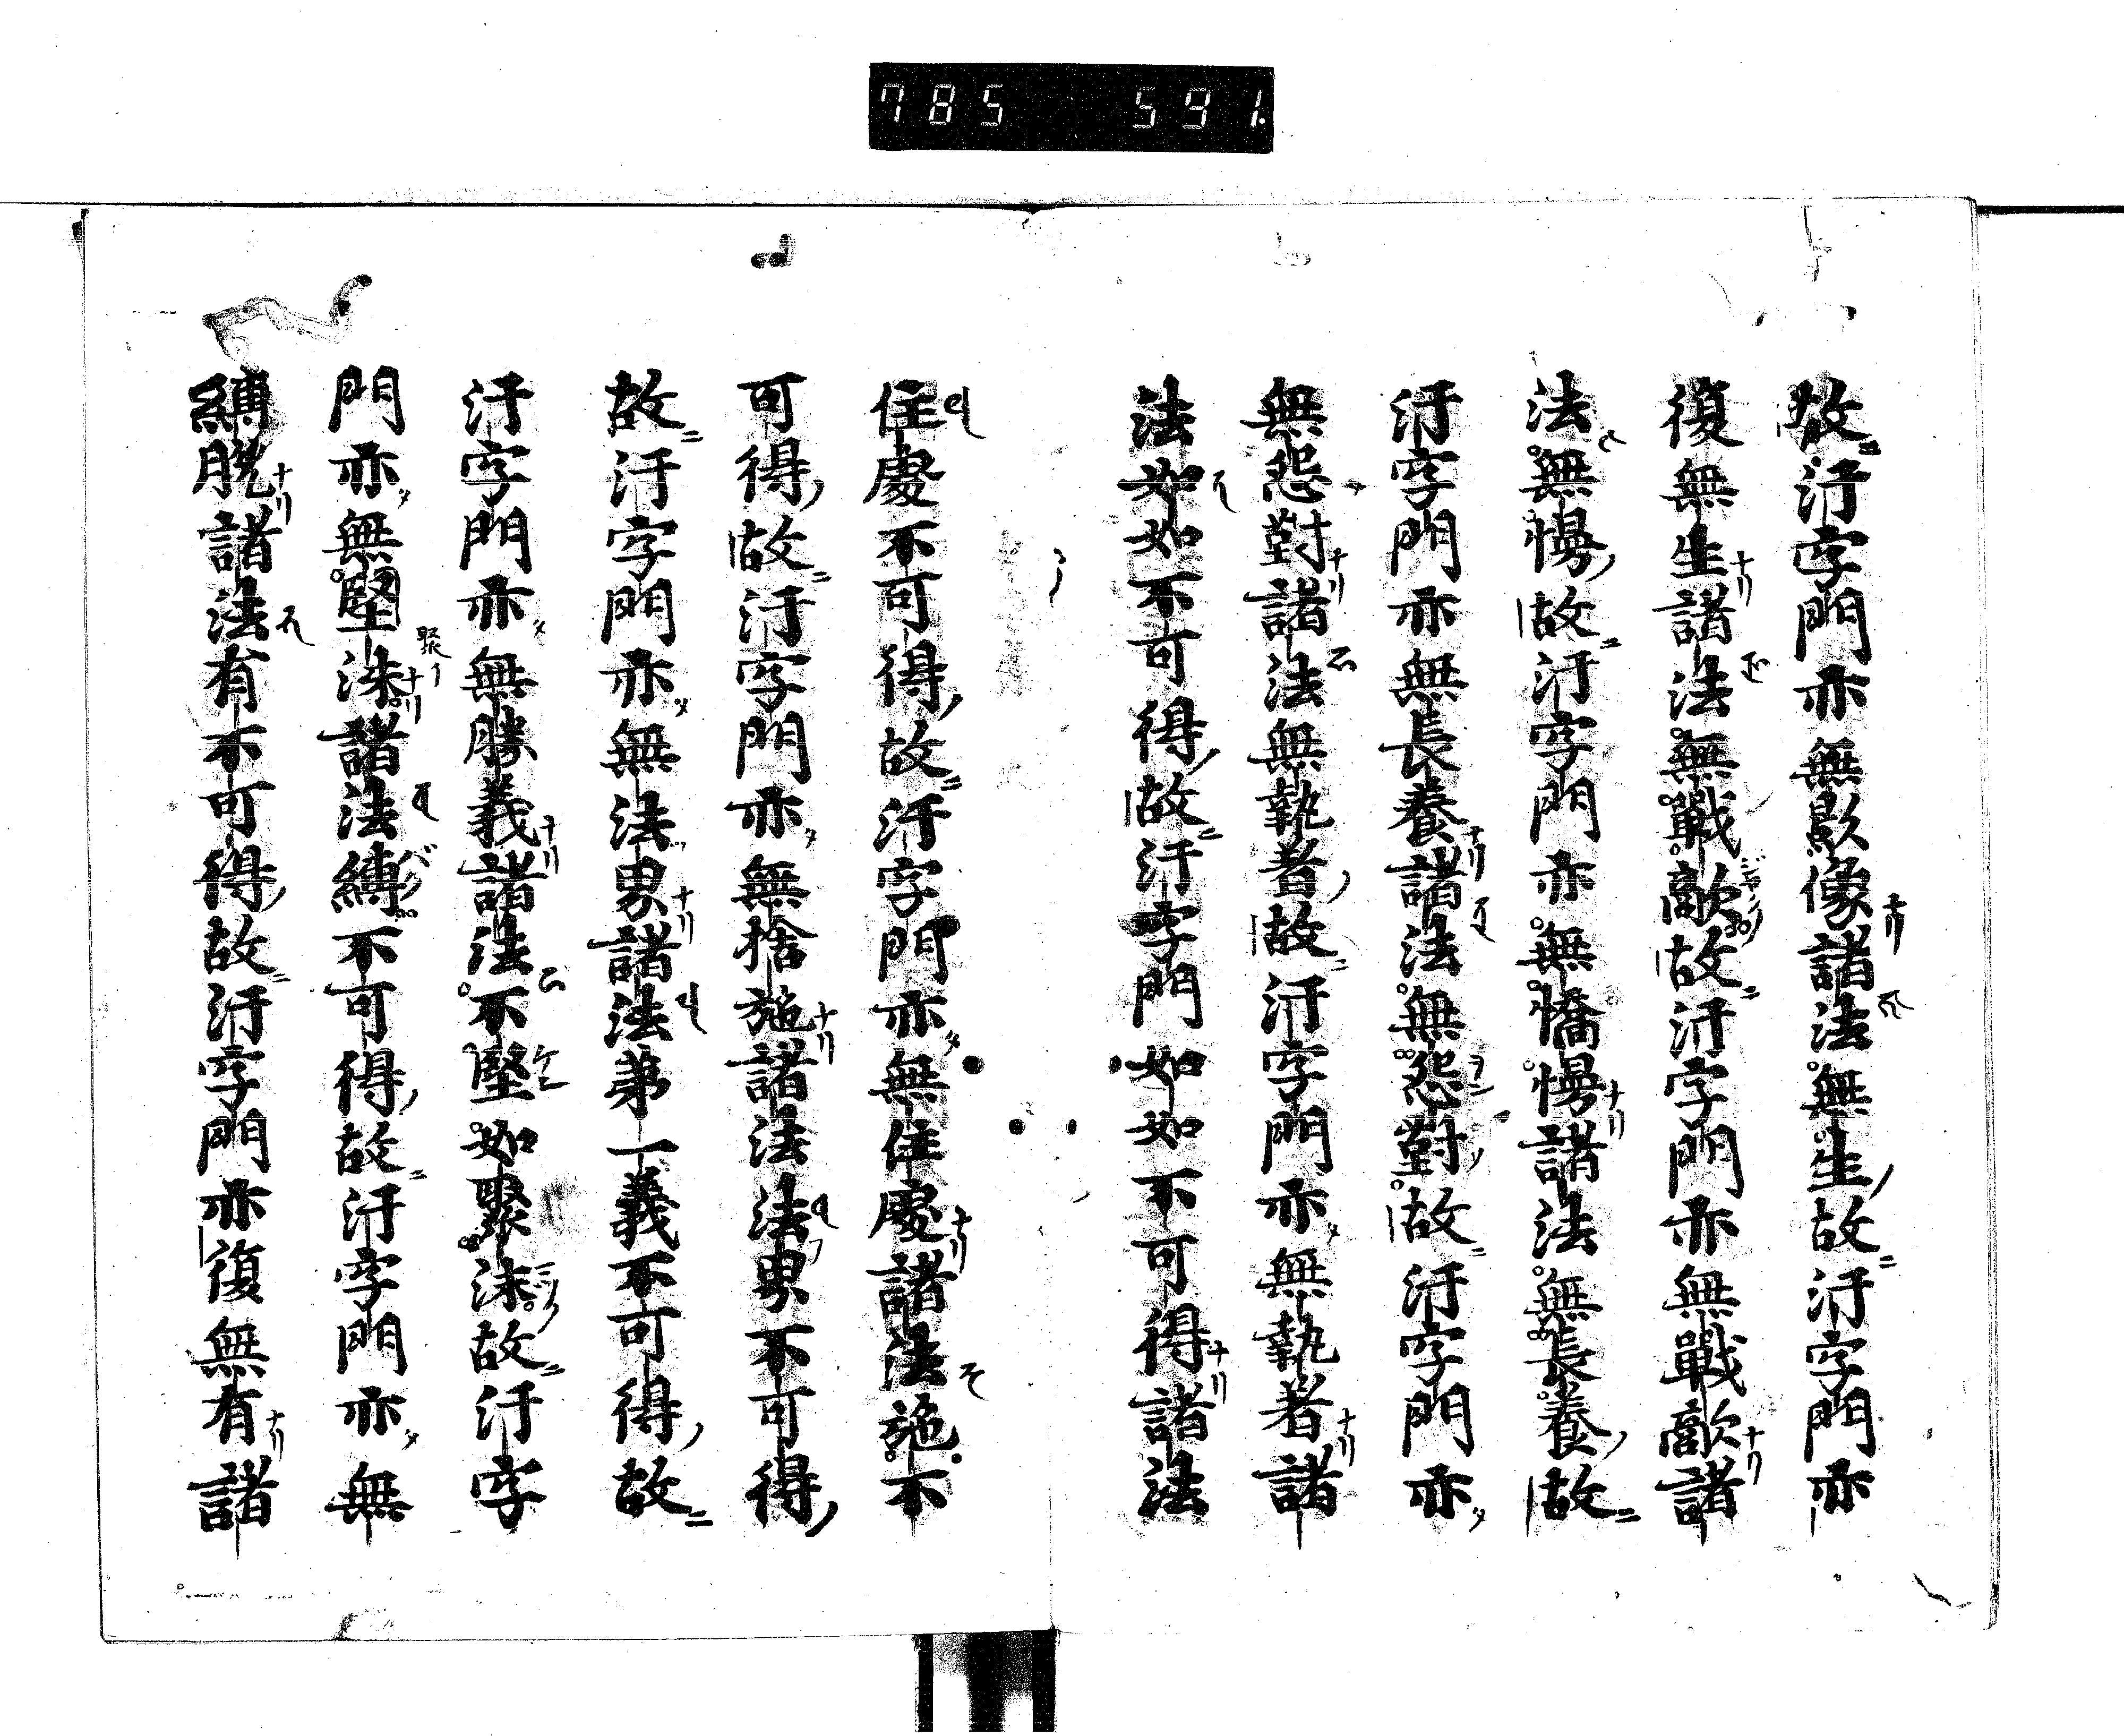 785 591.
故汙字門亦無影像諸法無生故汙字門亦
復無生諸法無戰敵故汙字門亦無戰敵諸
法無慢故汙字門亦無憍慢諸法無長養故
汙字門亦無長養諸法無怨對故汙字門亦
無怨對諸法無執者故汙字門亦無執者諸
法如如不可得故汙字門如如不可得諸法
住處不可得故汙字門亦無住處諸法施不
可得故汙字門亦無捨施諸法法界不可得
故汙字門亦無法界諸法第一義不可得故
汙字門亦無勝義諸法不堅如聚沫故汙字
門亦無堅沫諸法縛不可得故汙字門亦無
縛脱諸法有不可得故汙字門亦復無有諸